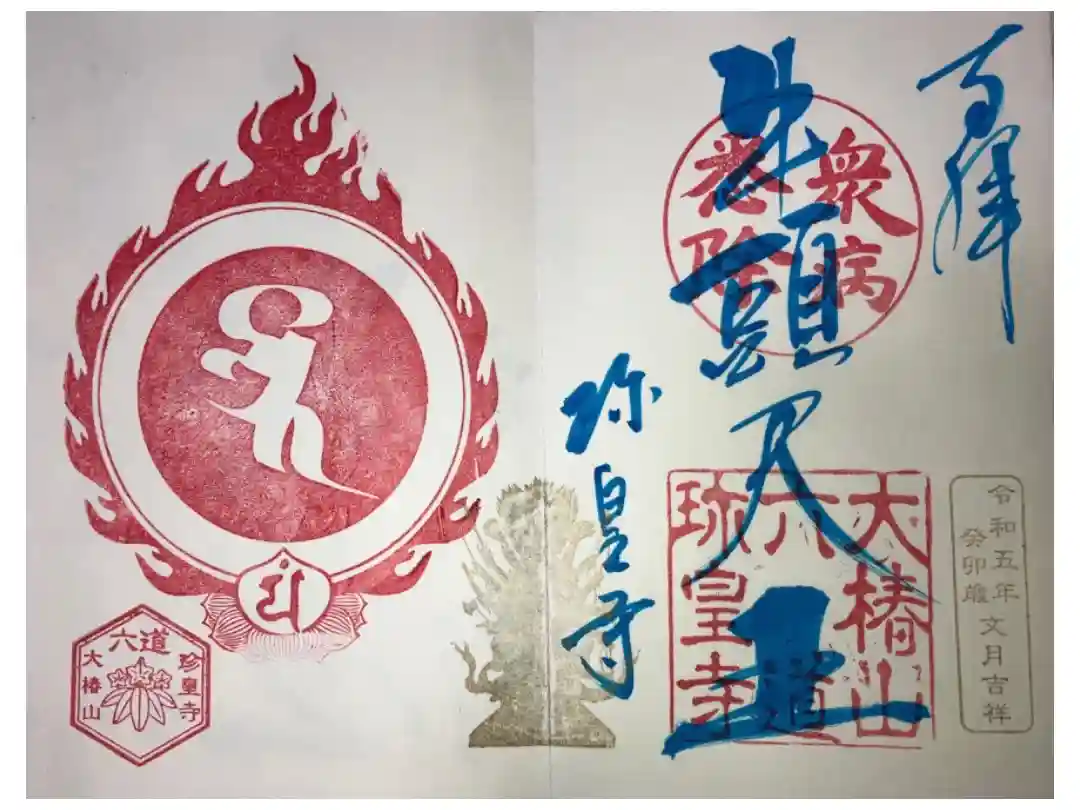 奉拝
衆病悉除
牛頭天王
大椿山
六道
珎皇寺
珎皇寺
令和五年文月吉祥
癸卯歳
六道
珍皇寺
大椿山